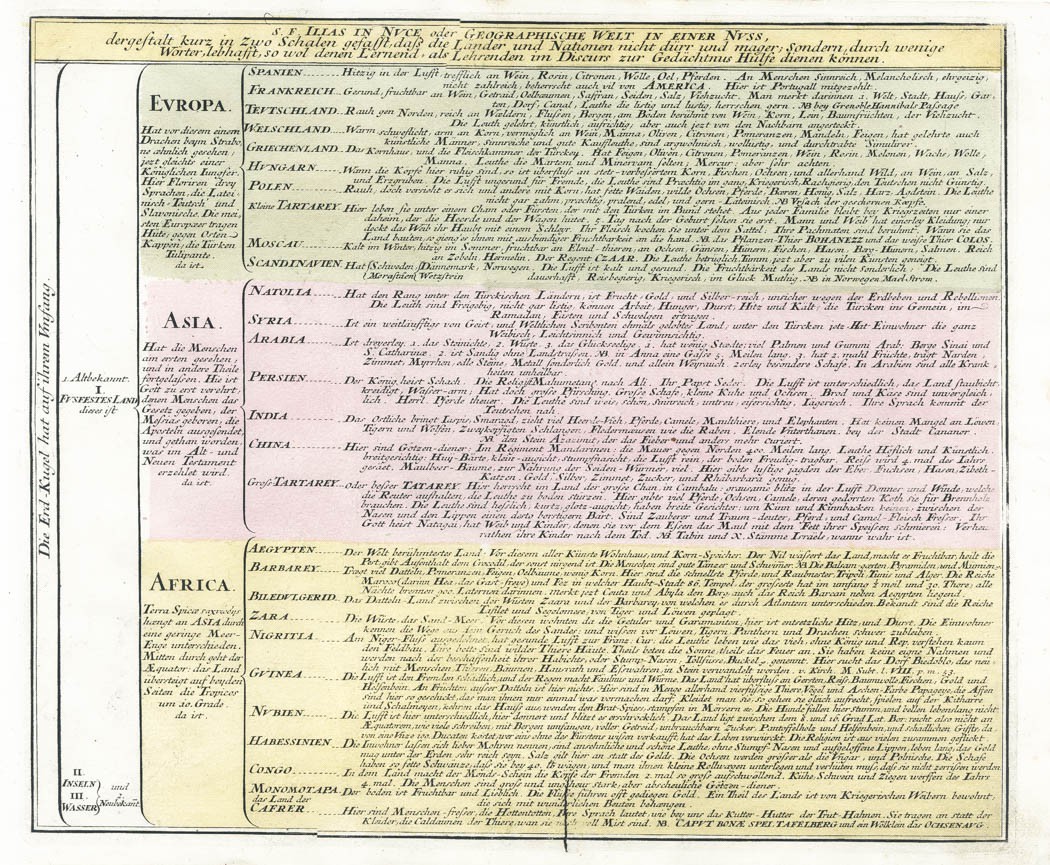 S. F. ILIAS IN NVCE oder GEOGRAPHISCHE WELT IN EINER NVSS,
dergestalt kurz in zwo Schalen gefasst, daß die Länder und Nationen nicht dürr und mager; sondern, durch wenige
Wörter, lebhafft, so wol denen Lernend, als Lehrenden im Discurs zur Gedächtnus Hülfe dienen können.
Die Erd-Kugel hat auf ihrem Umfang
1. Altbekannt.
FUNFESTES LAND
dieses ist
II.
INSELN
III.
WASSER
und
2.
Neubekant.
EVROPA.
Hat vor diesem einem
Drachen beym Strabo,
ne æhnlich gesehen;
jezt gleichts einer
Königlichen Iungfer.
Hier Floriren drey
Sprachen, die Latei-
nisch-Teutsch und
Slavonische. Die mei,
sten Europæer tragen
Hüte; gegen Osten
Kappen; die Türken
Tulipante.
da ist.
SPANIEN Hitzig in der Lufft, trefflich an Wein, Rosin, Citronen, Wolle, Oel, Pferden. An Menschen Sinnreich, Melancholisch, ehrgeizig,
nicht zahlreich, beherrscht auch vil von AMERICA. Hier ist Portugall mitgezehlt.
FRANKREICH Gesund, fruchtbar an Wein, Getraid, Oelbaumen, Saffran, Seiden, Salz, Viehzucht. Man merckt darinnen 2. Welt, Stadt, Hauß, Gar-
ten, Dorf, Canal, Leuthe die listig und lustig, herrschen gern. NB bey Grenoble Hannibals Passage
TEVTSCHLAND Rauh gen Norden, reich an Wældern, Flüssen, Bergen, am Böden berühmt von Wein, Korn, Lein, Baumfrüchten, der Viehzucht.
Die Leuth gelehrt, künstlich, aufrichtig, aber auch jezt von den Nachbarn angesteckt.
WELSCHLAND Warm schweflicht, arm an Korn, vermöglich an Wein, Manna, Oliven, Citronen, Pomeranzen, Mandeln, Feigen, hat gelehrte auch
künstliche Männer, sinnreiche und gute Kaufleuthe, sind argwohnisch, wollustig, und durchtrabte Simulirer.
GRIECHENLAND Das Kornhaus, und die Fleischkammer der Türkey. Hat Feigen, Oliven, Citronen, Pomeranzen, Wein, Rosin, Melonen, Wachs, Wolle,
Manna. Leuthe die Martem und Minervam söllen; Mercur: aber sehr achten.
HVNGARN Wann die Köpfe hier ruhig sind, so ist überfluß an stets-verbessertem Korn, Fischen, Ochsen, und allerhand Wild, an Wein, an Salz,
und Erzgruben. Die Lufft ungesund für Fremde, die Leuthe sind Prächtig im gang, Kriegerisch, Rachgierig, den Teutschen nicht Günstig.
POLEN Rauh, doch versieht es sich und andere mit Korn, hat fette Waiden, wilde Ochsen, Pferde, Bæren, Honig, Salz, Harz, Adelstein. Die Leuthe
nicht gar zahm, prachtig, pralend, edel, und gern-Lateinisch. NB Ursach der geschornen Kæpfe.
Kleine TARTAREY Hier leben sie unter einem Cham oder Fürsten, der mit den Türken im Bund stehet. Aus jeder Familie bleibt bey Kriegszeiten nur einer
daheim, der die Heerde und der Wägen hütet. 5. Tag nach der Geburt sehen sie erst. Mann und Weib hat einerley Kleidung; nur
deckt das Weib ihr Haubt mit einem Schleyr. Ihr Fleisch kochen sie unter dem Sattel. Ihre Pachnaten sind berühmt. Wann sie das
Land bauten, so gienge es ihnen mit ausbündiger Fruchtbarkeit an die hand. NB. das Pflanzen-Thier BOHANEZZ und das weiße Thier COLOS.
MOSCAU Kalt im Winter, hitzig im Sommer, fruchtbar an Elend-thieren, an Ochsen, Gänsen, Hünern, Fischen, Hasen, Berg-Hünern, Salmen. Reich
an Zobeln, Hermelin. Der Regent CZAAR. Die Leuthe betruglich, Tumm, jezt aber zu vilen Künsten geneigt.
SCANDINAVIEN Hat Schweden, Dännemark, Norwegen. Die Lufft ist kalt und gesund. Die Fruchtbarkeit des Lands nicht sonderlich; Die Leuthe sind
Morastisen, Wetzstein dauerhafft, Reisbegierig, Kriegerisch, im Glück Muthig. NB in Norwegen Mael-Strom.
ASIA.
Hat die Menschen
am ersten gesehen,
und in andere Theile
fortgelassen. Hie ist
Gott zu erst verehret,
denen Menschen das
Gesetz gegeben, der
Messias geboren; die
Apostels ausgesendet,
und gethan worden,
was im Alt- und
Neuen Testament
erzehlet wird.
da ist.
NATOLIA Hat den Rang unter den Türckischen Ländern, ist Frucht-Gold- und Silber-reich, unsicher wegen der Erdbeben und Rebellionen
Die Leuth sind Freigebig, nicht gar listig, können Arbeit, Hunger, Durst, Hitz und Kält; die Türcken ins Gemein, im
Ramadan, Fasten und Schwelgen ertragen.
SYRIA Ist ein weitläufftig von Geist- und Weltlichen Scribenten ehmals gelobtes Land, unter den Türcken jezt. Hat Einwohner die ganz
Weibisch, Leichtsinnich und Gewinnsichtig.
ARABIA Ist dreyerley, 1. das Steinichte, 2. Wüste, 3. das Glückseelige. 1. hat wenig Stædte, viel Palmen und Gummi Arab: Berge Sinai und
St. Catharinæ; 2. ist Sandig ohne Landstrassen. NB. in Anna eine Gasse 5. Meilen lang. 3. hat 2. mahl Früchte, trägt Narden,
Zimmet, Myrrhen, edle Steine, Metall sonderlich Gold, und allein Weyrauch. 2erley besondere Schafe. In Arabien sind alle Krank,
heiten unheilbar.
PERSIEN Der König heist Schach. Die Religiö Mahumetane nach Ali. Ihr Papst Seder. Die Lufft ist unterschiedlich, das Land staubicht,
kreidigt, Wasser-arm; Hat doch grosse Pfirsching, Grosse Schafe, kleine Kühe und Ochsen. Brod und Kæss sind unverglich:
lich. Herrl. Pferde theuer. Die Leuthe sind weis, schön, Sinnreich, untreu, eifersichtig, Tagerisch. Ihre Sprach kommt der
Teutschen nah.
INDIA Das Ostliche bringt Iaspis, Smaragd, zieht viel Heerde-Vieh, Pferde, Camele, Maulthiere, und Elephanten. Hat keinen Mangel an Löwen,
Tigern und Wölfen, zweyköpfigten Schlangen, Fledermausen wie die Raben. Elende Unterthanen, bey der Stadt Cananor.
NB. den Stein Azazimit, der das Fieber und anders mehr curiert.
CHINA Hier sind Götzen-diener; Im Regiment Mandarinen; die Mauer gegen Norden 400. Meilen lang. Leuthe Höflich und Künstlich,
breitgesichtig, Hup-Bärte, klein-augicht, stumpfnasicht, die Lufft rein, der boden Freudig-tragbar. Reiß wird 4. mal des Jahrs
gesäet. Mäulbeer-Bäume, zur Nährung der Seiden-Würmer, viel. Hier gibts lustige jagden der Eber, Fuchsen, Hasen, Zibeth-
Katzen, Gold, Silber, Zimmet, Zucker, und Rhabarbara genug.
Groß TARTAREY oder besser TATAREY Hier herrscht im Land der grosse Chan, in Cambalu; grausame blitz in der Lufft, Donner und Winde, welche
die Reuter aufhalten, die Leuthe zu boden stürzen. Hier gibts viel Pferde, Ochsen, Camele, deren gedörrten Koth sie für Brennholz
brauchen. Die Leuthe sind hesslich, kurtz, glotz-augicht, haben breite Gesichter; um Kinn und Kinnbacken keinen, zwischen der
Nasen und den Lippen einen desto borstigern Bärt. Sind Zauberer und Traum-deuter, Pferd- und Camel-Fleisch Fresser. Ihr
Gott heist Natagai, hat Weib und Kinder, denen sie vor dem Essen das Maul mit dem Fett ihrer Speisen schmieren; Verheu
rathen ihre Kinder nach dem Tod. NB. Tabin und X. Stämme Israels, wanns wahr ist.
AFRICA.
Terra Spicæ
hængt an ASIA durch
eine geringe Meer-
Enge unterschieden.
Mitten durch geht der
Æquator; das Land
übersteigt auf beyden
Seiten die Tropicos
um 20. Grade.
da ist.
AEGYPTEN Der Wölt berühmtestes Land. Vor diesem aller Künste Wohnhaus, und Korn-Speicher. Der Nil wässert das Land, macht es Fruchtbar, heilt die
Pest, gibt Aufenthalt dem Crocodil, der sonst nirgend ist. Die Menschen sind gute Tänzer und Schwimer. NB. Die Balsam-garten, Pyramiden, und Mumien.
BARBAREY Trägt viel Datteln, Pomeranzen, Feigen, Oelbaume, wenig Korn. Hier sind die schnellste Pferde, und Raubnester, Tripoli, Tunis und Algier. Die Reiche
Maroco (darinn Hea, das Gast-freye) und Fez in welcher Haubt-Stadt 86. Tempel, der grösseste hat im umfang ½ meil, und 30. Thore, alle
Nächte brennen 900. Laternen darinnen. Merkt jezt Ceuta und Abyla den Berg, auch das Reich Barcan neben Aegypten liegend.
BILEDVLGERID Das Datteln-Land zwischen der Wüsten Zaara und der Barbarey, von welchen es durch Atlantem unterschieden. Bekandt sind die Reiche
Tafilet und Segelomesse, von Tiger und Löwen geplagt.
ZARA Die Wüste, das Sand-Meer. Vor diesen wohnten da die Getuler und Garamanten, hier ist entsetzliche Hitz, und Durst. Die Einwohner
kennen die Wege aus dem Geruch des Sandes; und wissen vor Löwen, Tigern, Panthern und Drachen schwer zubleiben.
NIGRITIA Am Niger-Fluß ausgedehnet, hat gesunde Lufft zur Franz. cur, die Leuthe leben wie das vieh, ohne König und Rep, verstehen kaum
den Feldbau. Ihre bette sind wilder Thiere Häute. Theils beten die Sonne, theils das Feuer an. Sie haben keine eigne Nahmen und
werden nach der beschaffenheit ihrer Habichts- oder Stump-Nasen, Tollfüsse, Buckel &. genennt. Hier sucht das Dorf Biedoblo, das neu-
lich mit Menschen Thieren, Bäumen, Hausrath und Eßwahren, in Stein verwandelt worden. v. Kirch. M. Subt. l. VIII. p. m. 53.
GVINEA Die Lufft ist den Fremden schädlich, und der Regen macht Faulnus und Würme. Das Land hat überfluß an Gersten, Reiß, Baumwolle, Fischen, Gold und
Helfenbein. An Früchten ausser Datteln ist hier nichts. Hier sind in Menge allerhand vierfüssige Thiere, Vögel und Aschen-Farbe Papageye, die Affen
sind hier so geschickt, das man ihnen nur einmal was vormachen darf. Kleidet man sie, so gehen sie gleich aufrecht, spielen auf der Kitharre
und Schalmeyen, kehren das Hauß aus, wenden den Brat-Spiess, stampfen in Mörsern &. Die Hunde fallen hier stumm, und bellen lebenslang nicht.
NVBIEN Die Lufft ist hier unterschiedlich, hier donnert und blitzet es erschröcklich. Das Land ligt zwischen dem 8. und 16. Grad Lat. Bor. reicht also nicht an
Æquatorem, wie viele schreiben, mit Bergen umfangen, voller Getreid, unbrauchbarn Zucker, Pantoffelholz und Helfenbein, und schädlichen Giffts, da,
von eine Unze 100. Ducaten kostet, wer eins ohne des Fürstens wissen verkaufft hat das Leben verwürckt. Die Religion ist aus vielen zusammen geflickt.
HABESSINIEN Die Inwohner lassen sich lieber Mohren nennen, sind ansehnliche und schöne Leuthe, ohne Stumpf-Nasen und aufgeloffene Lippen, leben lang, das Gold
mag unter der Erden sehr reich seyn. Salz gilt hier an statt des Gelds. Die Ochsen werden grösser als die Ungar- und Polnische. Die Schafe
haben so fette Schwänze, daß sie bey 40. ℔ wägen und man ihnen kleine Rollwägen unterlegen und verhüten muß, daß sie nicht zerrissen werden
CONGO In dem Land macht der Monds-Schein die Köpfe der Fremden 2. mal so gross aufschwöllend. Kühe, Schwein und Ziegen werffen des Jahrs
4. mal. Die Menschen sind groß und ungheuer stark, aber abscheuliche Götzen-diener.
MONOMOTAPA Der boden ist Fruchtbar und Lieblich. Die Flüsse führen offt gediegen Gold. Ein Theil des Lands ist von Kriegerischen Weibern bewohnt,
die sich mit wunderlichen Beuten behängen.
das Land der
CAFRER Hier sind Menschen-fresser, die Hottentotten, Ihre Sprach lautet, wie bey uns das Kutter-Hutter der Trut-Halmen. Sie tragen an statt der
Kleider, die Caldaunen der Thiere, wan sie noch voll Mist sind. NB. CAPVT BONÆ SPEI, TAFELBERG und ein Wölklein das OCHSENAUG.